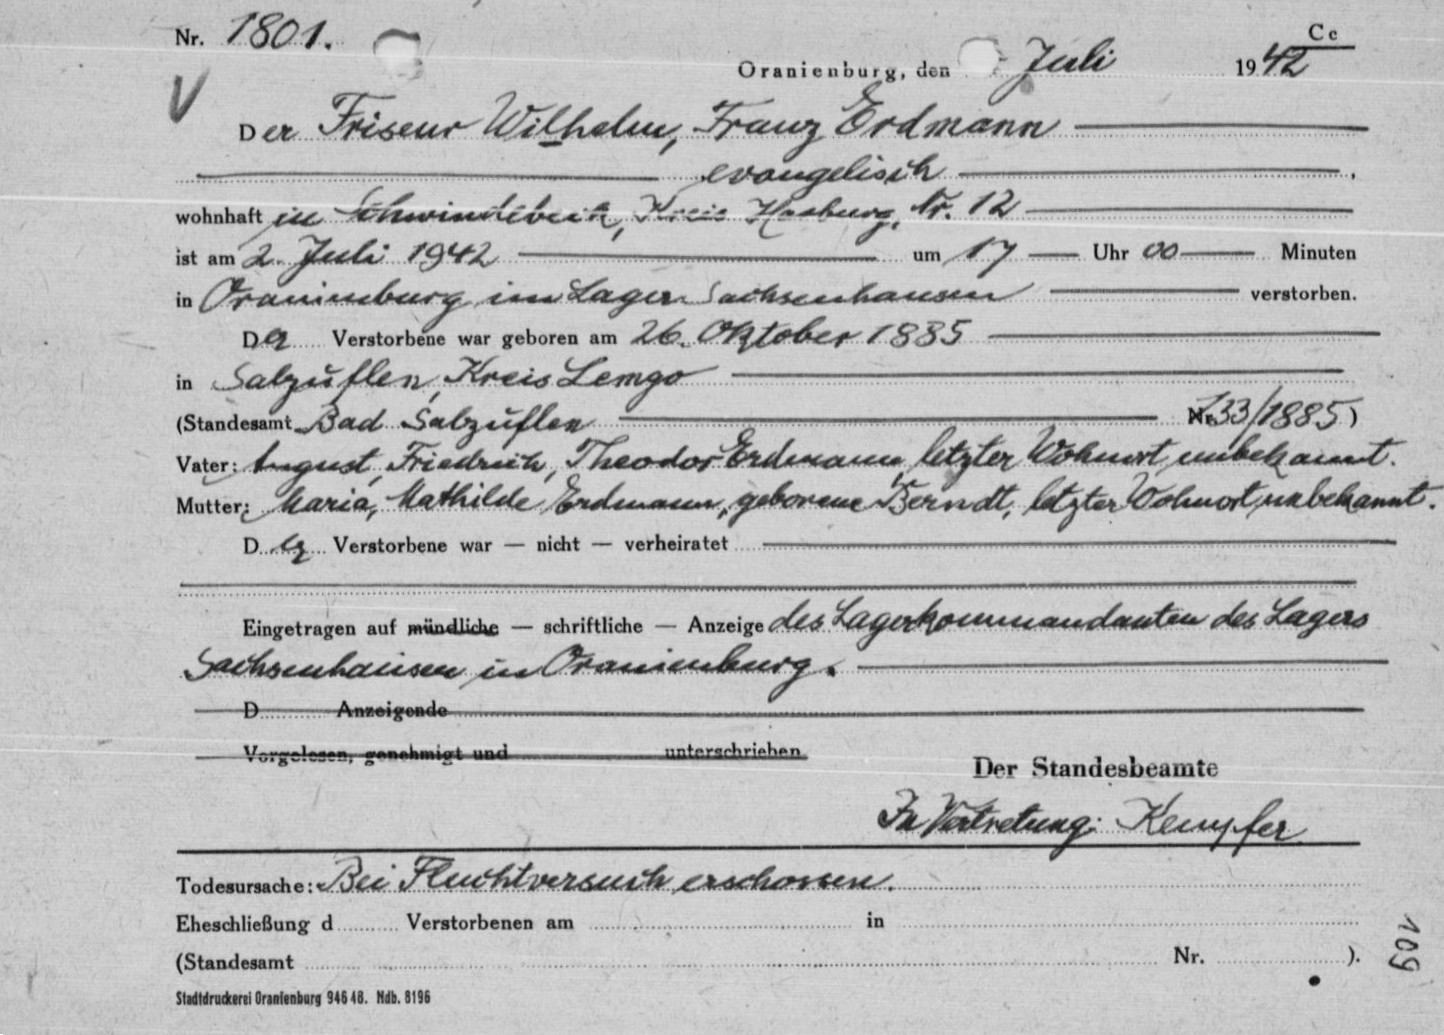 Nr. 1801.
Cc
Oranienburg, den Juli 1942
Der Friseur Wilhelm, Franz Erdmann
evangelisch,
wohnhaft in Schwindebeck, Kreis Harburg, Nr. 12
ist am 2. Juli 1942 um 17 Uhr 00 Minuten
in Oranienburg im Lager Sachsenhausen verstorben.
Der Verstorbene war geboren am 26. Oktober 1885
in Salzuflen, Kreis Lemgo
(Standesamt Bad Salzuflen Nr. 133/1885)
Vater: August, Friedrich, Theodor Erdmann letzter Wohnort unbekannt.
Mutter: Maria, Mathilde Erdmann, geborene Berndt, letzter Wohnort unbekannt.
Der Verstorbene war — nicht — verheiratet
Eingetragen auf mündliche — schriftliche — Anzeige des Lagerkommandanten des Lagers
Sachsenhausen in Oranienburg.
D Anzeigende
Vorgelesen, genehmigt und unterschrieben
Der Standesbeamte
In Vertretung: Kempfer
Todesursache: Bei Fluchtversuch erschossen.
Eheschließung d Verstorbenen am in
(Standesamt Nr. ).
109
Stadtdruckerei Oranienburg 946 48. Ndb. 8196